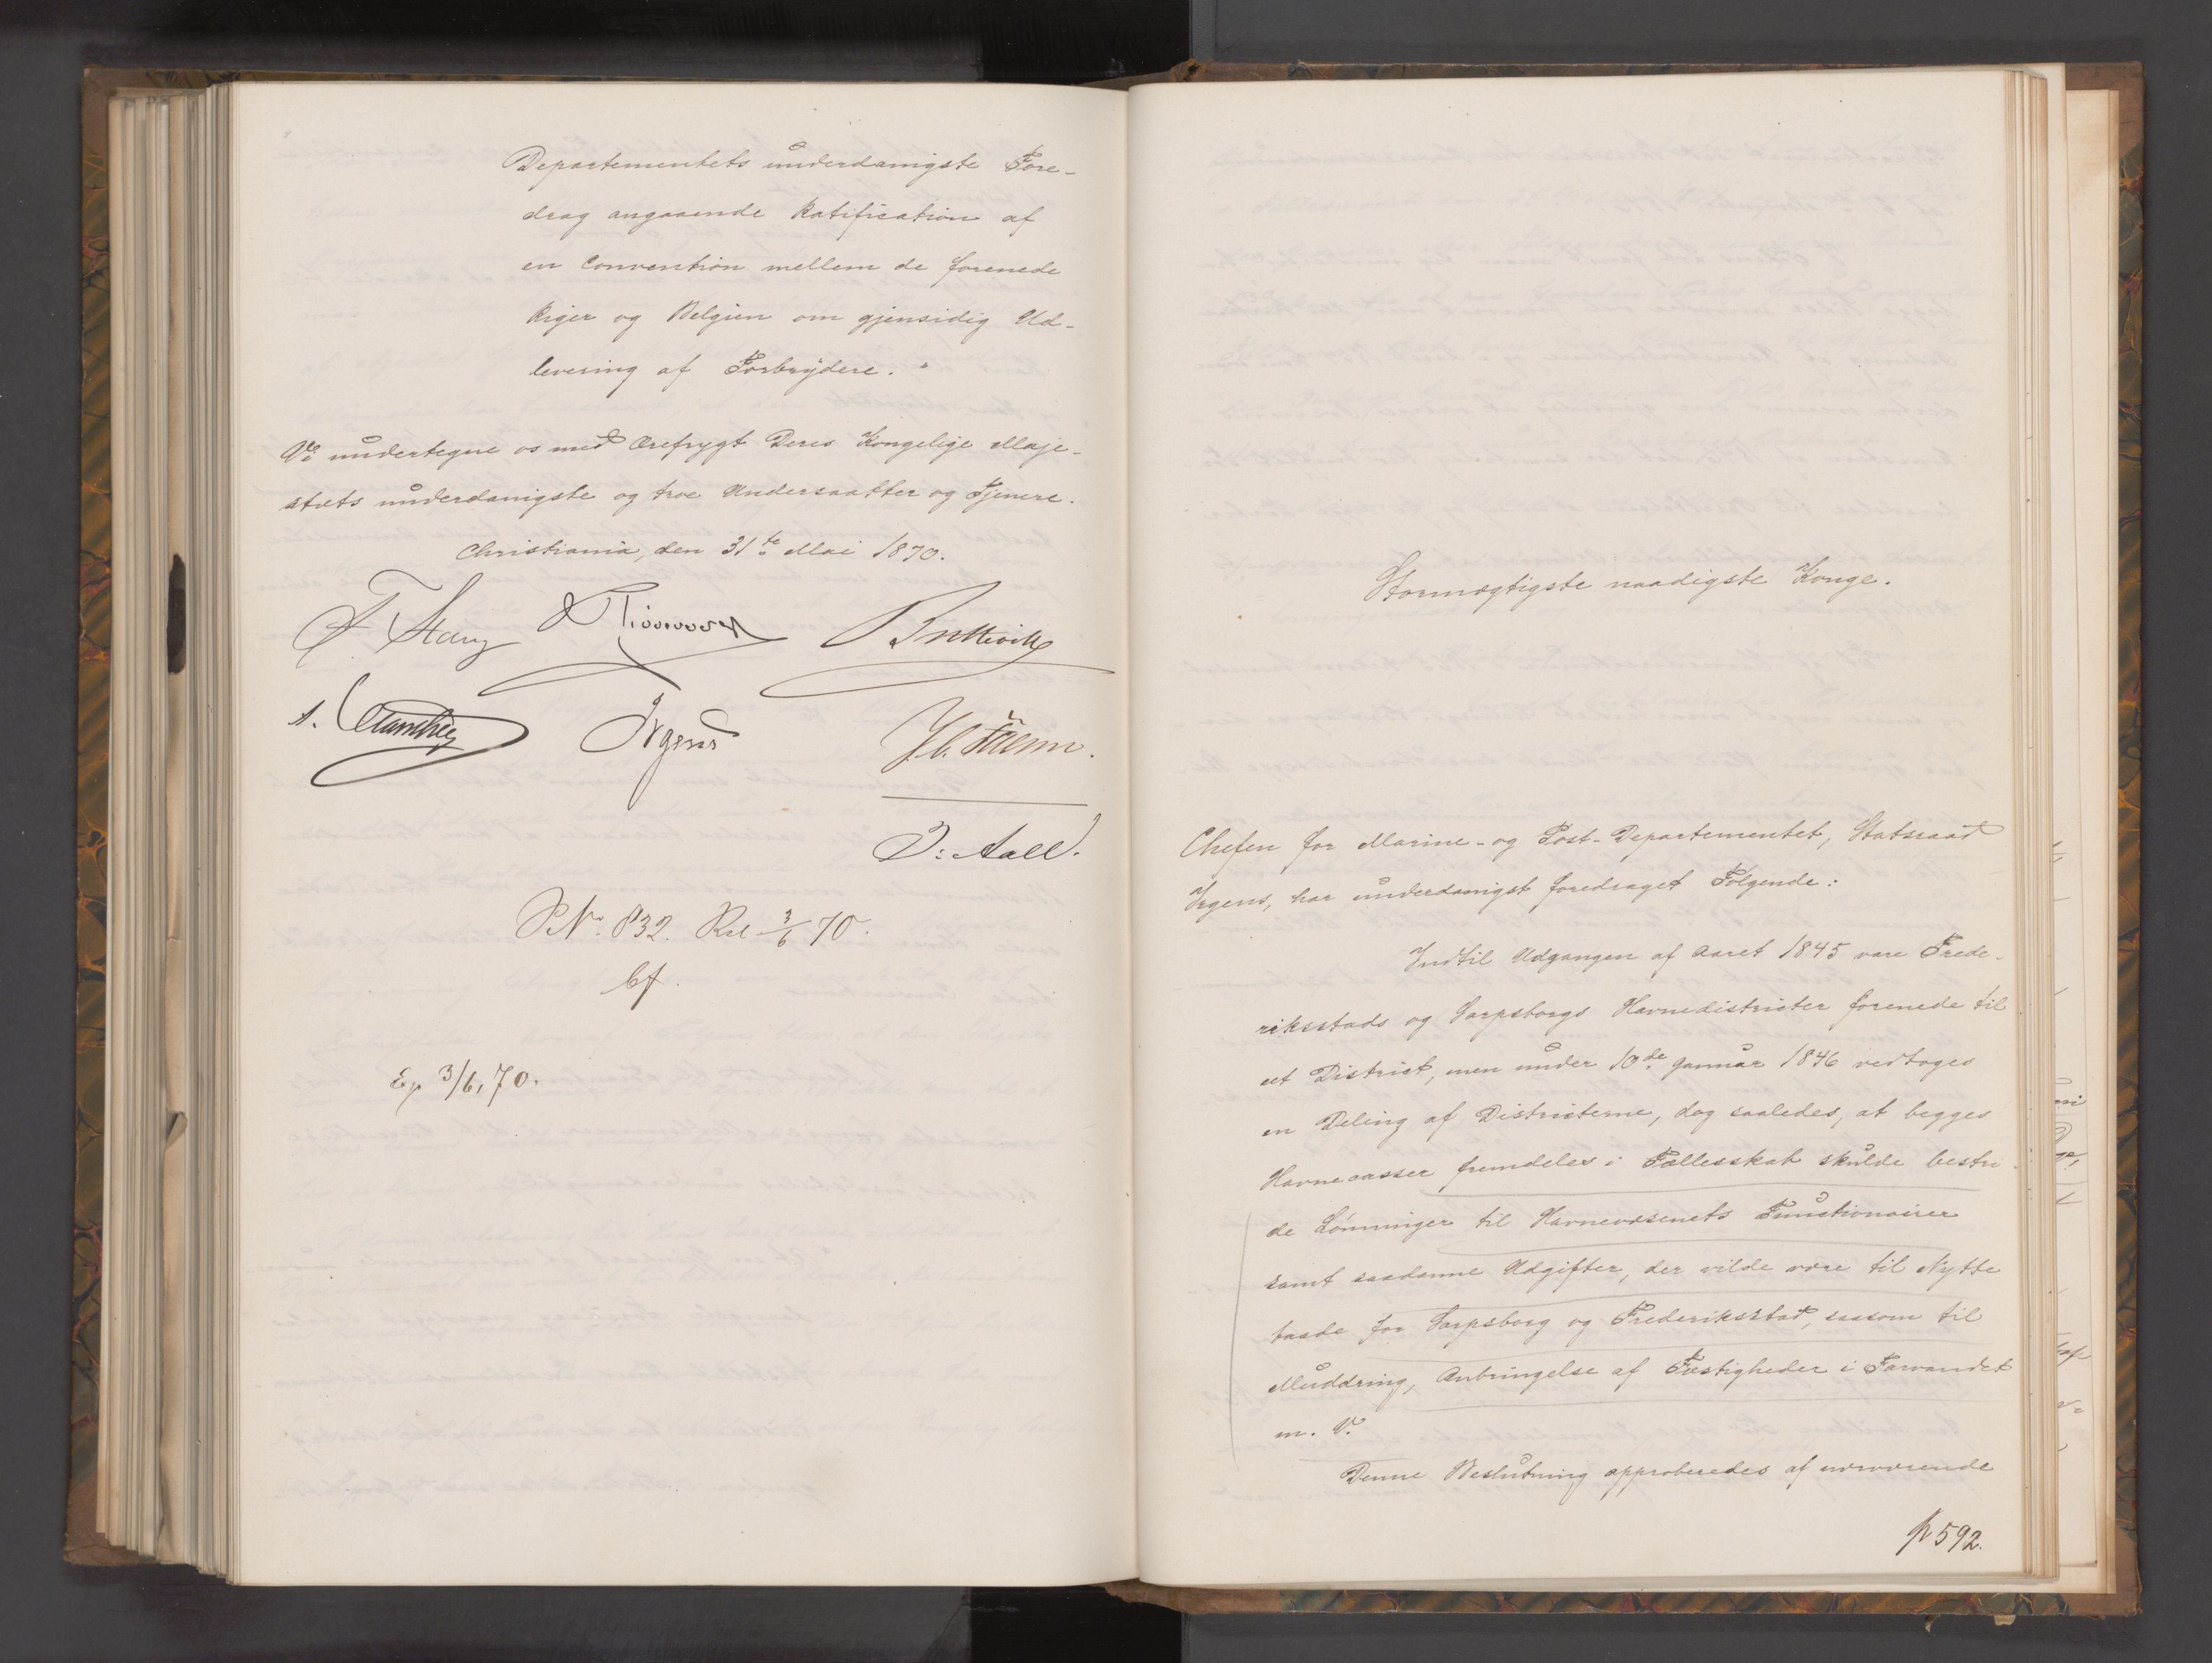 Departementets underdanigste Fore-
drag angaaende Ratification af
en Convention mellem de forenede
Riger og Belgien om gjensidig Ud-
levering af Forbrydere.
Vi undertegne os med Ærefrygt Deres Kongelige Maje-
stæts underdanigste og troe Undersaatter og Tjenere.
Christiania, den 31te Mai 1870.
F. Stang
Irgens
J. Aall.
P.N. 832. Rsl 3/6 70.
Ep 3/6, 70.
Stormægtigste naadigste Konge.
Chefen for Marine- og Post-Departementet, Statsraad
Irgens, har underdanigst foredraget Følgende:
Indtil Udgangen af Aaret 1845 vare Frede-
riksstads og Sarpsborgs Havnedistricter forenede til
eet District, men under 10de Januar 1846 vedtoges
en Deling af Districterne, dog saaledes, at begges
Havnecasser fremdeles i Fællesskab skulde bestri-
de Lønninger til Havnevæsenets Functionairer
samt saadanne Udgifter, der vilde være til Nytte
baade for Sarpsborg og Frederiksstad, saasom til
Muddring, Anbringelse af Fæstigheder i Farvandet
m. V.
Denne Beslutning approberedes af nærværende
p 592.